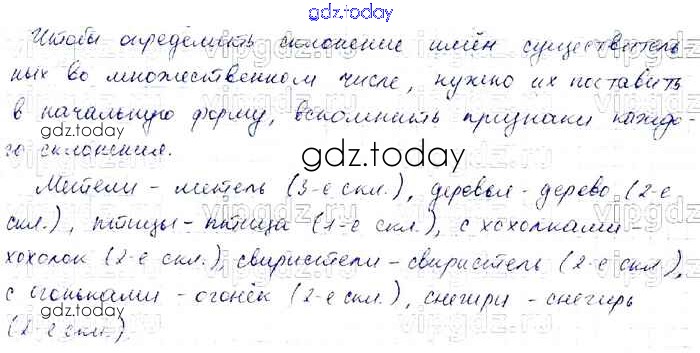 gdz.today
Чтобы определить склонение имён существитель-
ных во множественном числе, нужно их поставить
в начальную форму, вспомнить признаки каждо-
gdz.today
го склонения.
gdz.today
Метели - метель (3-е скл.), деревья - дерево (2-е
скл.), птицы - птица (1-е скл.), с хохолками -
хохолок (2-е скл.), свиристели - свиристель (2-е скл.),
с огоньками - огонёк (2-е скл.), снегири - снегирь
(2-е скл.)
gdz.today